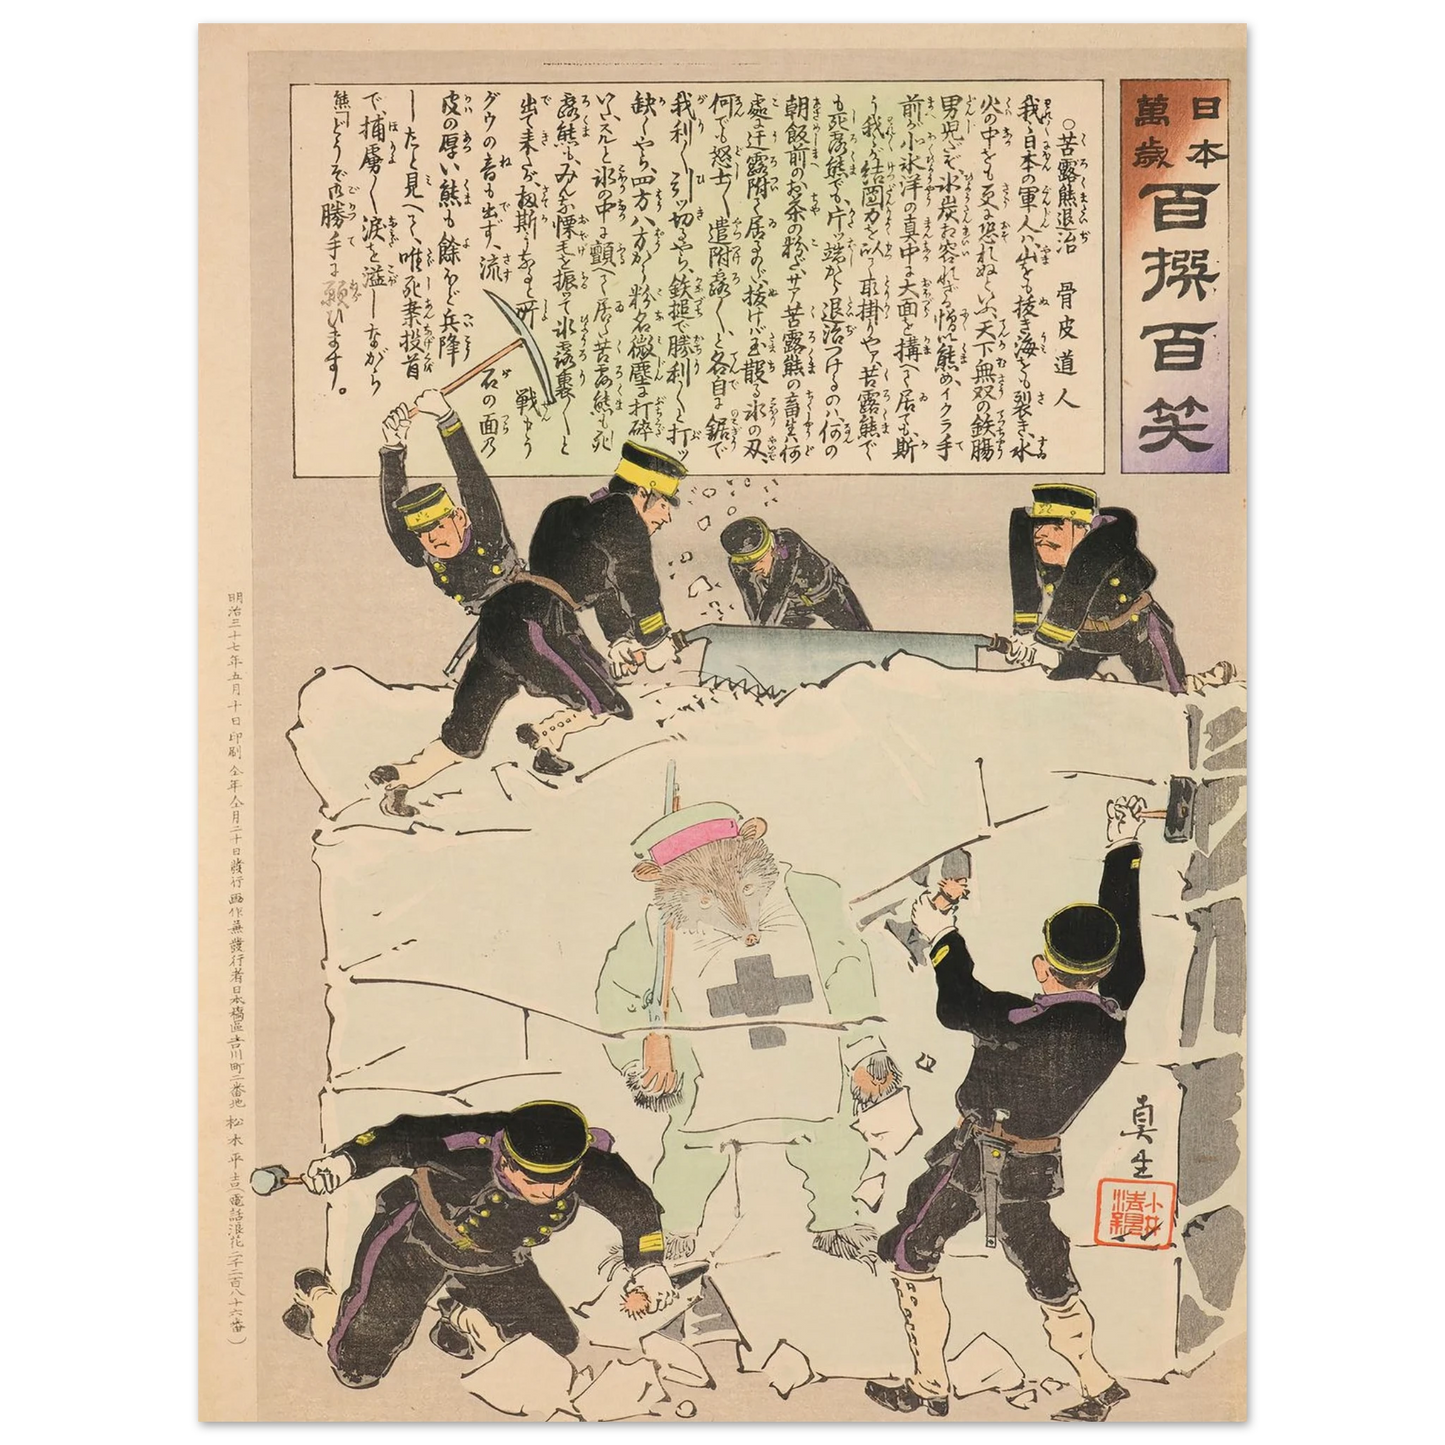 日本
萬歳
百撰百笑
○苦露熊退治　骨皮道人
我々日本の軍人ハ、山をも抜き海をも裂き、水
火の中をも更に恐れぬといふ、天下無双の鉄腸
男児だぞ、氷炭お容れざる憎い熊め、イクラ手
前が小氷洋の真中に大面を搆へて居ても、斯
う我々が結團力を以て取掛りやァ、苦露熊で
も死露熊でも、片ッ端から退治つけるのハ、何の
朝飯前のお茶の粉だ、サァ苦露熊の畜生、何
處に迂露附て居るのだ、抜けバ玉散る氷の刄、
何でも怒士々々遣附露々々と各自に鋸で
我利々々引ッ切るやら、鉄搥で勝利々々と打ッ
缺くやら、四方八方から粉名微塵に打碎
いスルと氷の中に顫へて居た苦露熊も死
露熊も、みんな慄毛を振って氷露裏々々と
出て来たが、扨斯うなると所　戦もう
グウの音も出ず、流　石の面乃
皮の厚い熊も餘ほど兵降
したと見へて、唯死棄投首
で、捕虜々々涙を溢しながら
熊「どうぞ御勝手に願ひます。
明治三十七年五月十日印刷 仝年仝月二十日發行 画作兼發行者日本橋區吉川町二番地 松木平吉(電話浪花二千二百八十六番)
真生
小林
清親